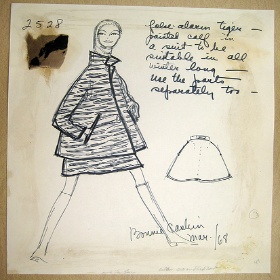 2528
false alarm tiger —
painted calf — in
a suit to be
suitable in all
winter long —
use the parts
separately too —
Bonnie Cashin
Mar/68